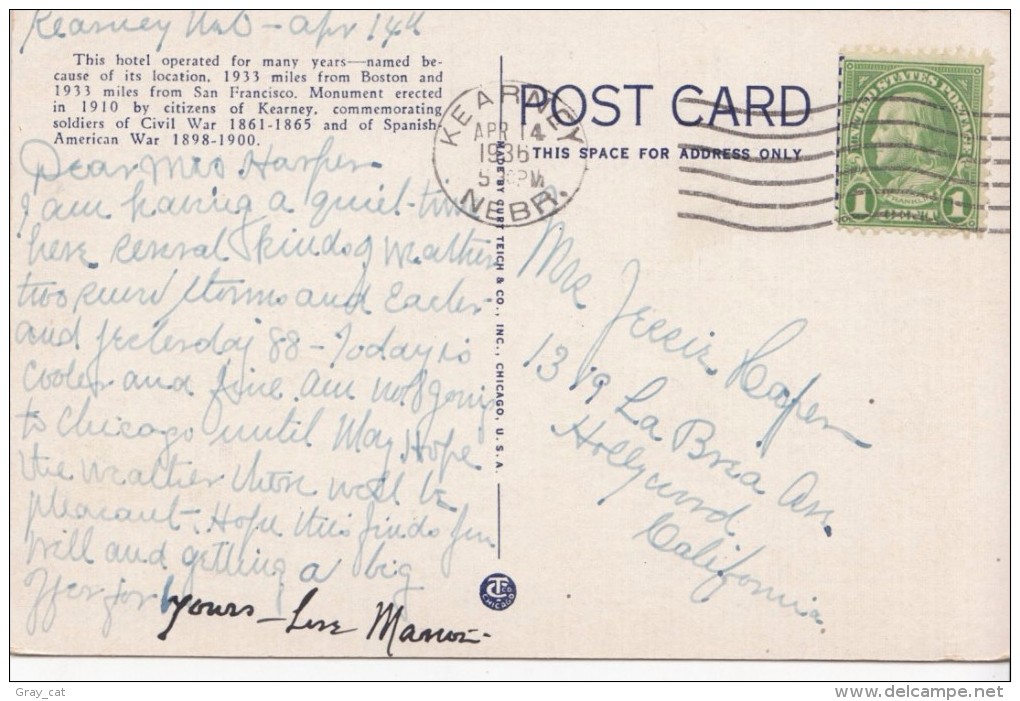 Kearney Neb - Apr 14th
This hotel operated for many years—named be-
cause of its location, 1933 miles from Boston and
1933 miles from San Francisco. Monument erected
in 1910 by citizens of Kearney, commemorating
soldiers of Civil War 1861-1865 and of Spanish
American War 1898-1900.
Dear Mrs Harper
I am having a quiet time
here several kinds of weather
two storms and Easter
and yesterday 88 - Today is
cooler and fine am not going
to Chicago until May Hope
the weather there will be
pleasant. Hope this finds you
well and getting a big
Yours - Love Marion-
MADE BY CURT TEICH & CO., INC., CHICAGO, U.S.A.
CT CO
CHICAGO
KEARNEY
APR 14
1936
5 PM
NEBR.
POST CARD
THIS SPACE FOR ADDRESS ONLY
UNITED STATES POSTAGE
FRANKLIN
1 1
Mrs Jessie Harper
1319 La Brea Ave.
Hollywood
California
Gray_cat
http://www.delcampe.net